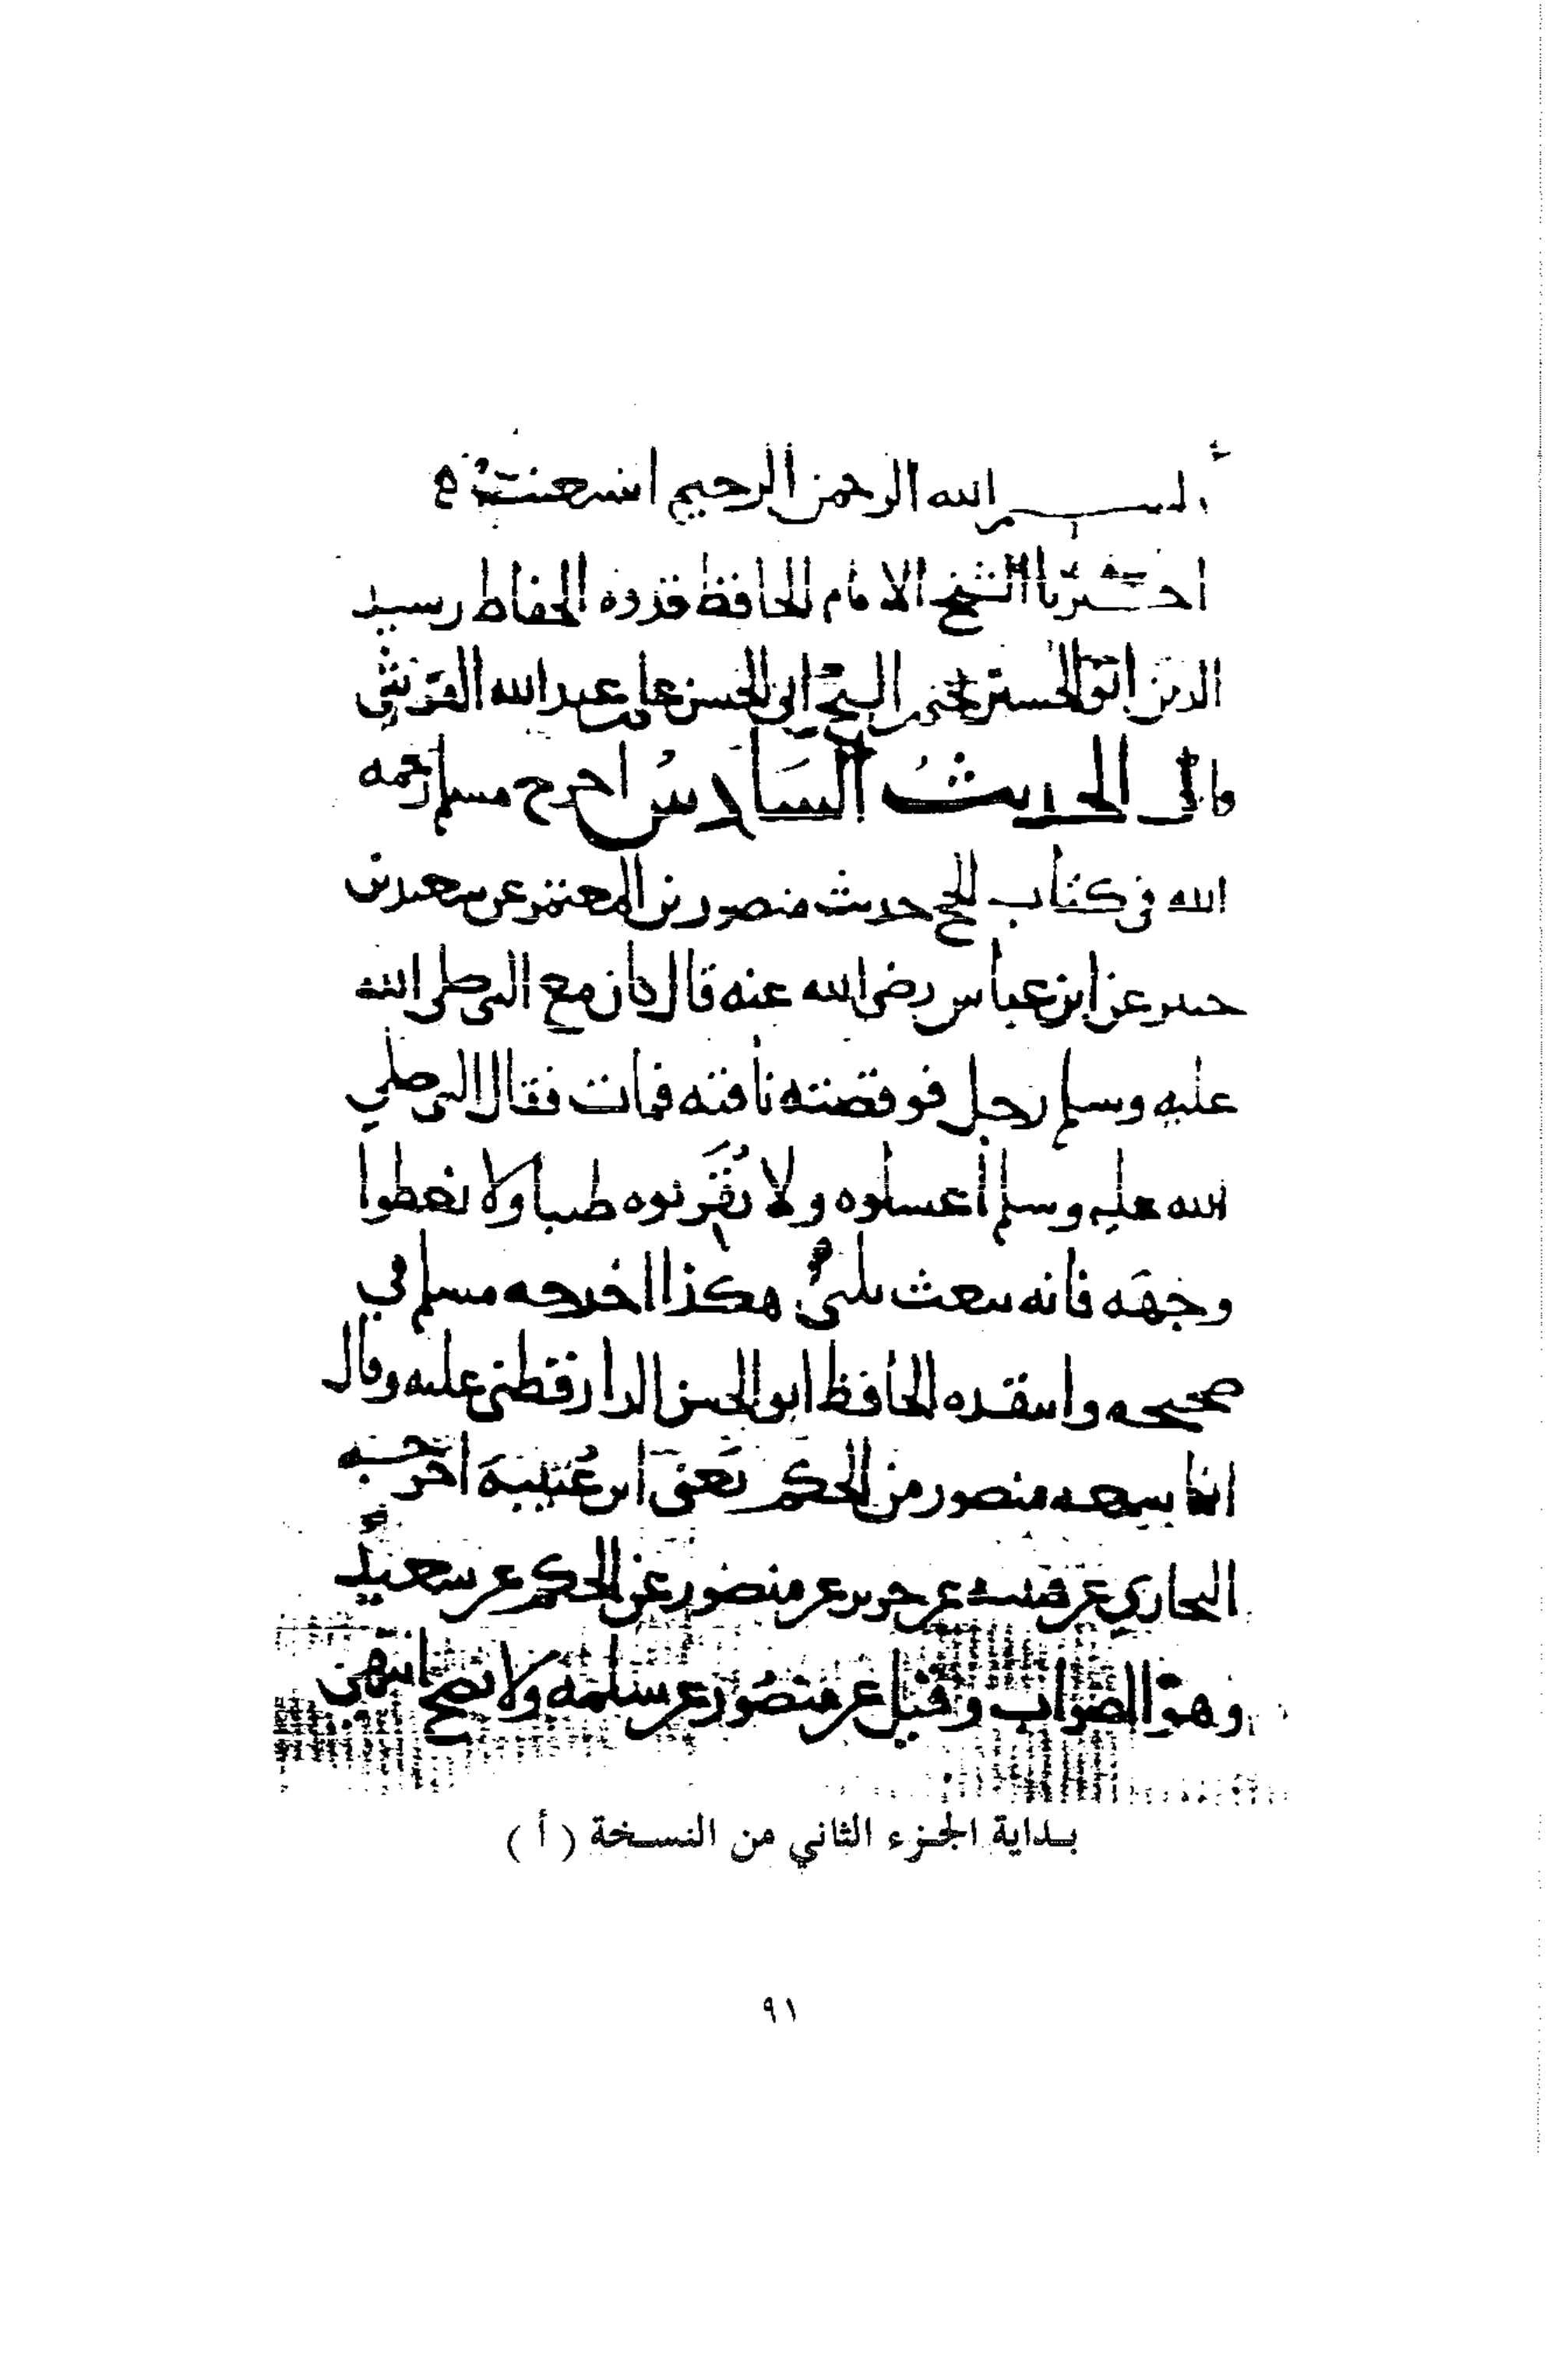 بسم الله الرحمن الرحيم استعنت
اخبرنا الشيخ الامام الحافظ قدوه الحفاظ رسيد
الدين ابو الحسين يحيى بن الشيخ ابى الحسن على بن عبد الله القرشي
قال الحديثُ السَادسُ اخرج مسلم رحمه
الله في كتاب الحج حديث منصور بن المعتمر عن سعيد بن
جبير عن ابن عباس رضى الله عنه قال كان مع النبى صلى الله
عليه وسلم رجل فوقصته ناقته فمات فقال النبى صلي
الله عليه وسلم اغسلوه ولا تُقَربوه طيبا ولا تغطوا
وجهَه فانه يبعث يلبىُ هكذا اخرجه مسلم في
صحيحه وانتقده الحافظ ابو الحسن الدارقطنى عليه وقال
انما سمعه منصور من الحكم يَعنى ابن عُتيبهَ اخرجه
البخاري عن قتيبه عن جرير عن منصور عن الحكم عن سعيدٍ
وهو الصواب وقيل عن منصور عن سلمه ولا يصح انتهى
بداية الجزء الثاني من النسخة (أ)
٩١